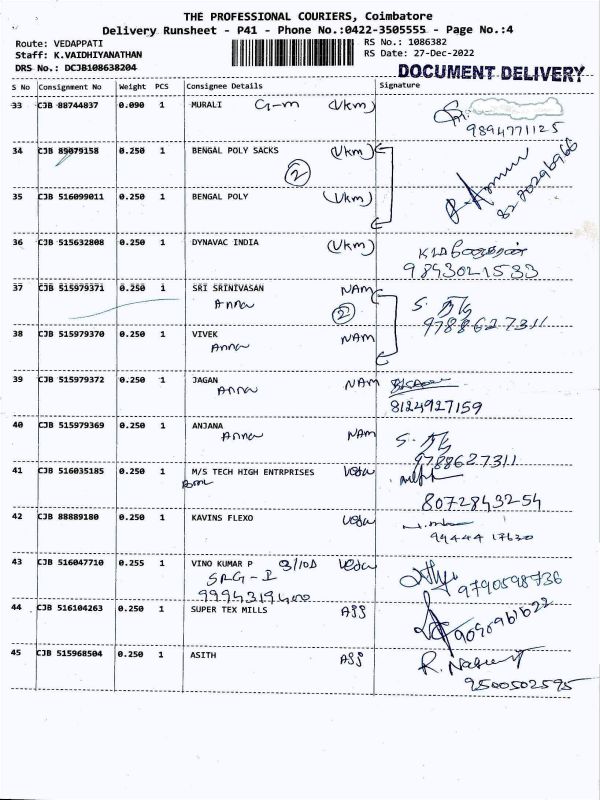 THE PROFESSIONAL COURIERS, Coimbatore
Delivery Runsheet - P41 - Phone No.:0422-3505555 - Page No.:4
Route: VEDAPPATI
RS No.: 1086382
Staff: K.VAIDHIYANATHAN
RS Date: 27-Dec-2022
DRS No.: DCJB108638204
DOCUMENT DELIVERY
S No Consignment No Weight PCS Consignee Details Signature
33 CJB 88744837 0.090 1 MURALI G-m (Vkm)
9894771125
34 CJB 85079158 0.250 1 BENGAL POLY SACKS (Vkm)
2
35 CJB 516099011 0.250 1 BENGAL POLY (Vkm)
8270296966
36 CJB 515632808 0.250 1 DYNAVAC INDIA (Vkm)
9843021533
37 CJB 515979371 0.250 1 SRI SRINIVASAN NAM
Anna 2
9788627311
38 CJB 515979370 0.250 1 VIVEK NAM
Anna
39 CJB 515979372 0.250 1 JAGAN NAM
Anna
8124927159
40 CJB 515979369 0.250 1 ANJANA NAM
Anna
9788627311
41 CJB 516035185 0.250 1 M/S TECH HIGH ENTRPRISES
8072843254
42 CJB 88889180 0.250 1 KAVINS FLEXO
94444 17630
43 CJB 516047710 0.255 1 VINO KUMAR P
SRG-I
9790598736
9994319400
44 CJB 516104263 0.250 1 SUPER TEX MILLS
9090961622
45 CJB 515968504 0.250 1 ASITH
9500502595